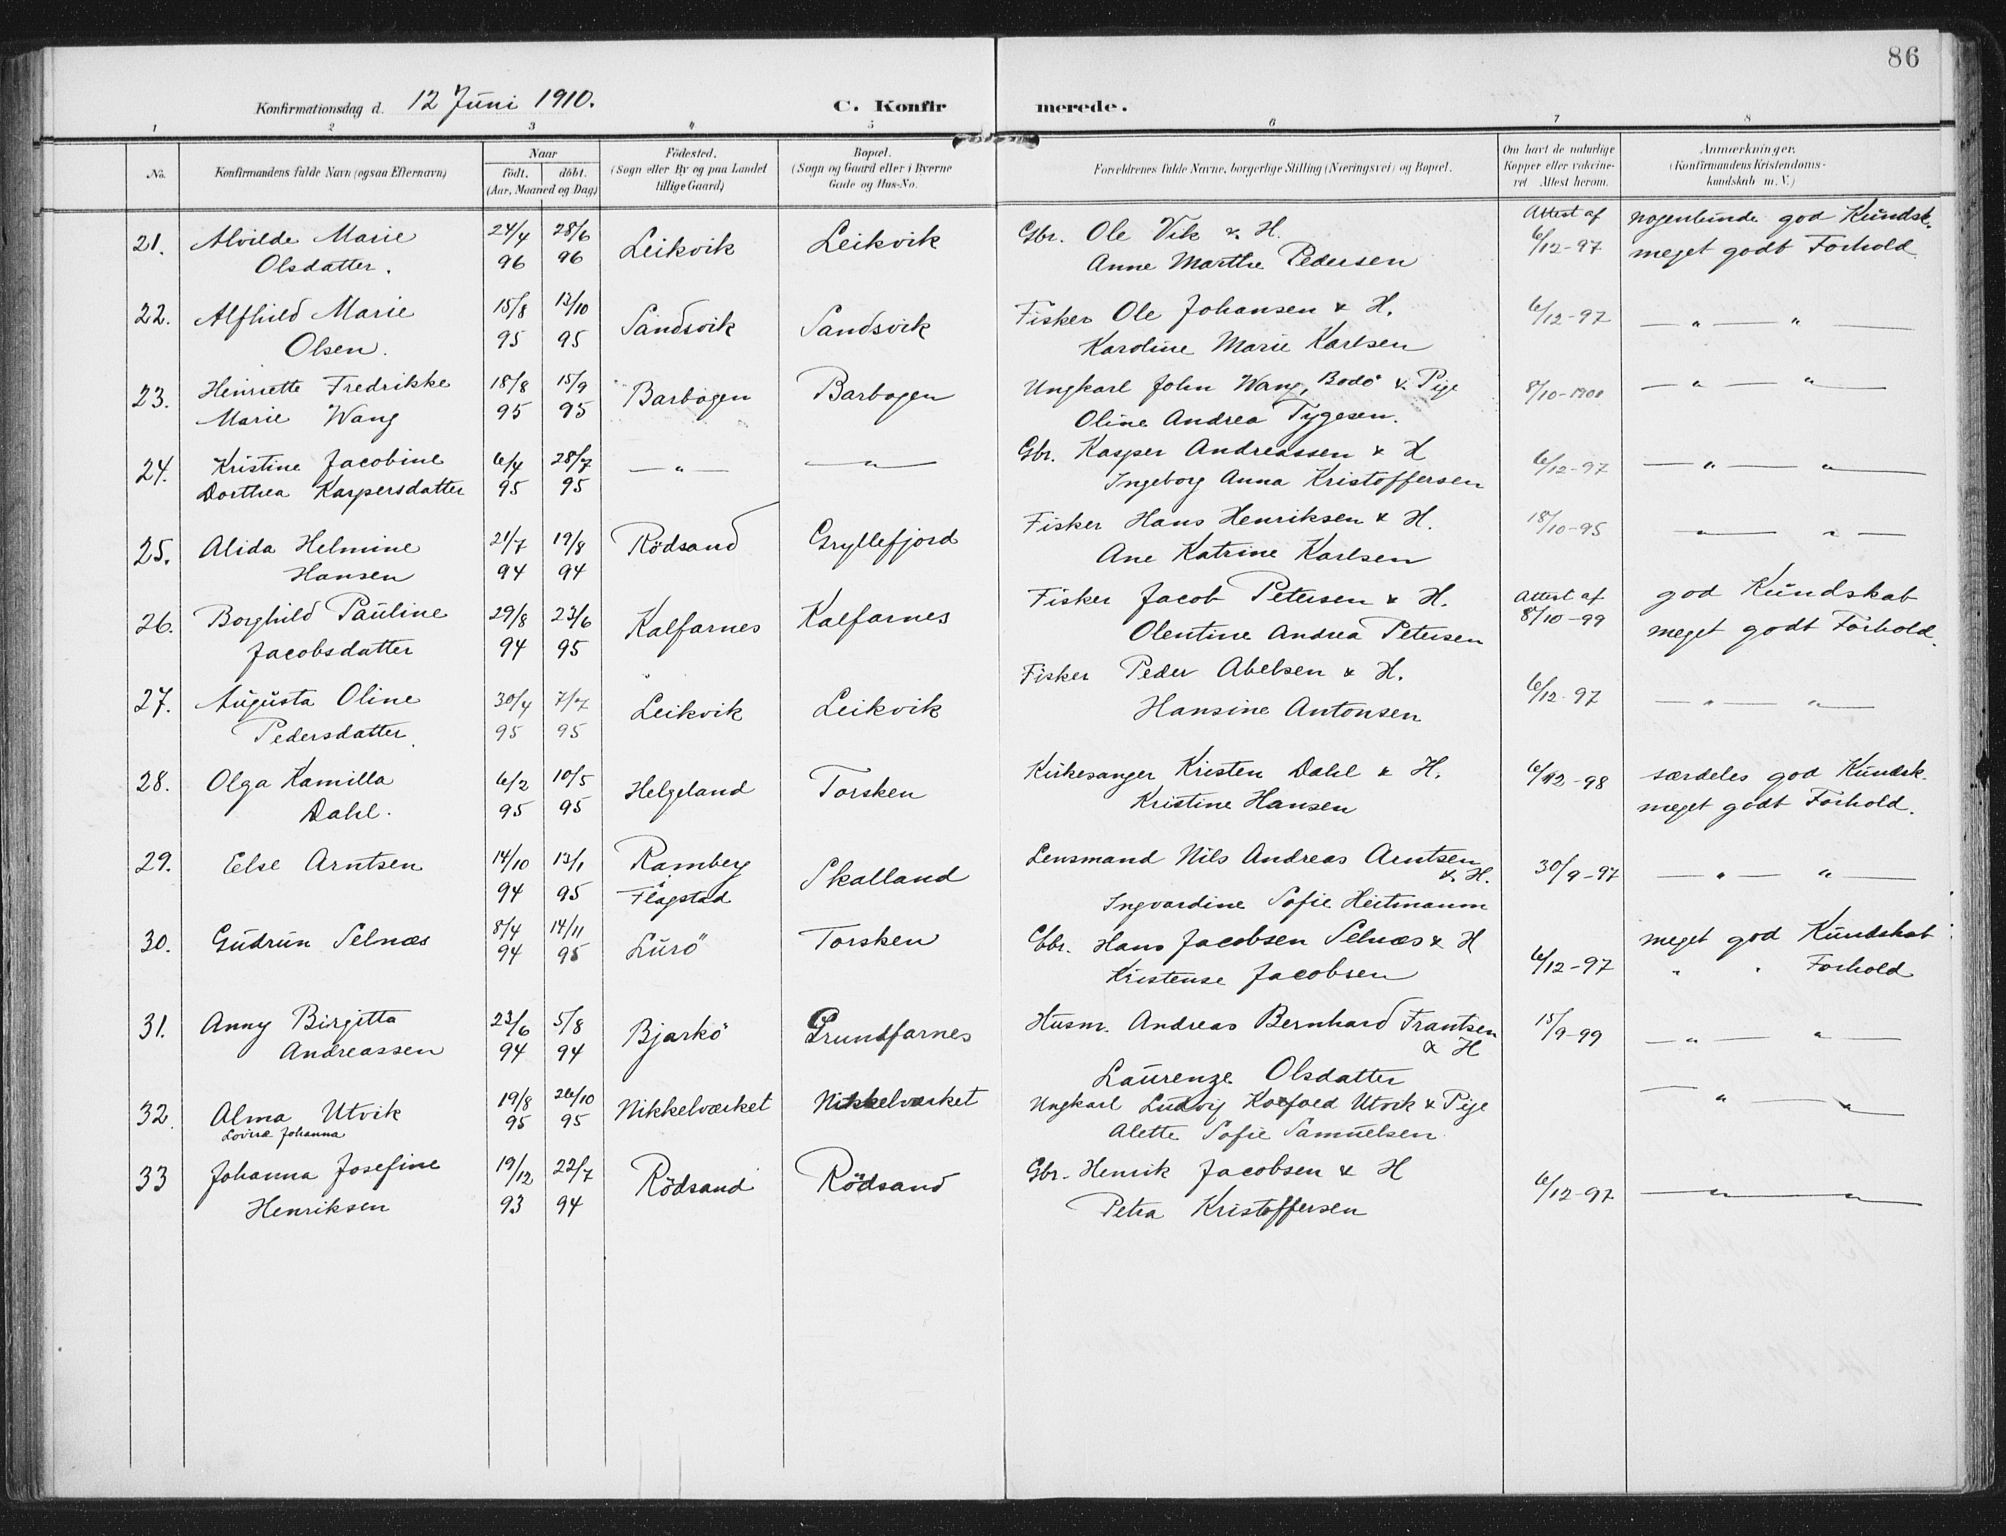 86
Konfirmationsdag d. 12 Juni 1910. C. Konfirmerede.
1 2 3 4 5 6 7 8
No. Konfirmandens fulde Navn (ogsaa Efternavn) Naar født. døbt. (Aar, Maaned og Dag) Fødested. (Sogn eller By og paa Landet tillige Gaard) Bopæl. (Sogn og Gaard eller i Byerne Gade og Hus-No. Forældrenes fulde Navne, borgerlige Stilling (Næringsvei) og Bopæl. Om havt de naturlige Kopper eller vakcineret Attest herom. Anmærkninger. (Konfirmandens Kristendomskundskab m. V.)
21. Alvilde Marie 24/4 28/6 Leikvik Leikvik Gbr. Ole Vik & H. Attest af 6/12-97 nogenlunde god Kundsk.
Olsdatter. 96 96 Anne Marthe Pedersen meget godt Forhold
22. Alfhild Marie 15/8 13/10 Sandsvik Sandsvik Fisker Ole Johansen & H. 6/12-97 — " — " —
Olsen. 95 95 Karoline Marie Karlsen
23. Henriette Fredrikke 18/8 15/9 Barbogen Barbogen Ungkarl John Wang, Bodö & Pige 8/10-1900 — " — " —
Marie Wang 95 95 Oline Andrea Tygesen.
24. Kristine Jacobine 6/4 28/7 — " — — " — Gbr. Kasper Andreassen & H 6/12-97 — " — " —
Dorthea Kaspersdatter 95 95 Ingeborg Anna Kristoffersen
25. Alida Helmine 21/7 19/8 Rödsand Gryllefjord Fisker Hans Henriksen & H. 18/10-95 — " — " —
Hansen 94 94 Ane Katrine Karlsen
26. Borghild Pauline 29/8 23/6 Kalfarnes Kalfarnes Fisker Jacob Petersen & H. Attest af 8/10-99 god Kundskab
Jacobsdatter 94 95 Olentine Andrea Petersen meget godt Forhold.
27. Augusta Oline 30/4 7/7 Leikvik Leikvik Fisker Peder Abelsen & H. 6/12-97 — " — " —
Pedersdatter. 95 95 Hansine Antonsen
28. Olga Kamilla 6/2 10/5 Helgeland Torsken Kirkesanger Kristen Dahl & H. 6/12-98 særdeles god Kundsk.
Dahl. 95 95 Kristine Hansen meget godt Forhold.
29. Else Arntsen 14/10 13/1 Ramberg Skalland Lensmand Nils Andreas Arntsen & H. 30/9-97 — " — " —
94 95 Flagstad Ingvardine Sofie Heitmann
30. Gudrun Selnæs 8/4 14/11 Lurö Torsken Gbr. Hans Jacobsen Selnæs & H 6/12-97 meget god Kundskab
94 95 Kristense Jacobsen " " Forhold
31. Anny Birgitta 23/6 5/8 Bjarkö Grundfarnes Husm. Andreas Bernhard Frantsen & H 15/9-99 — " — " —
Andreassen 94 94 Laurenze Olsdatter
32. Alma Utvik 19/8 26/10 Nikkelværket Nikkelværket Ungkarl Ludvig Koefoed Utvik & Pige — " — " —
Lovise Johanna 95 95 Alette Sofie Samuelsen
33 Johanna Josefine 19/12 22/7 Rödsand Rödsand Gbr. Henrik Jacobsen & H 6/12-97 — " — " —
Henriksen 93 94 Petra Kristoffersen